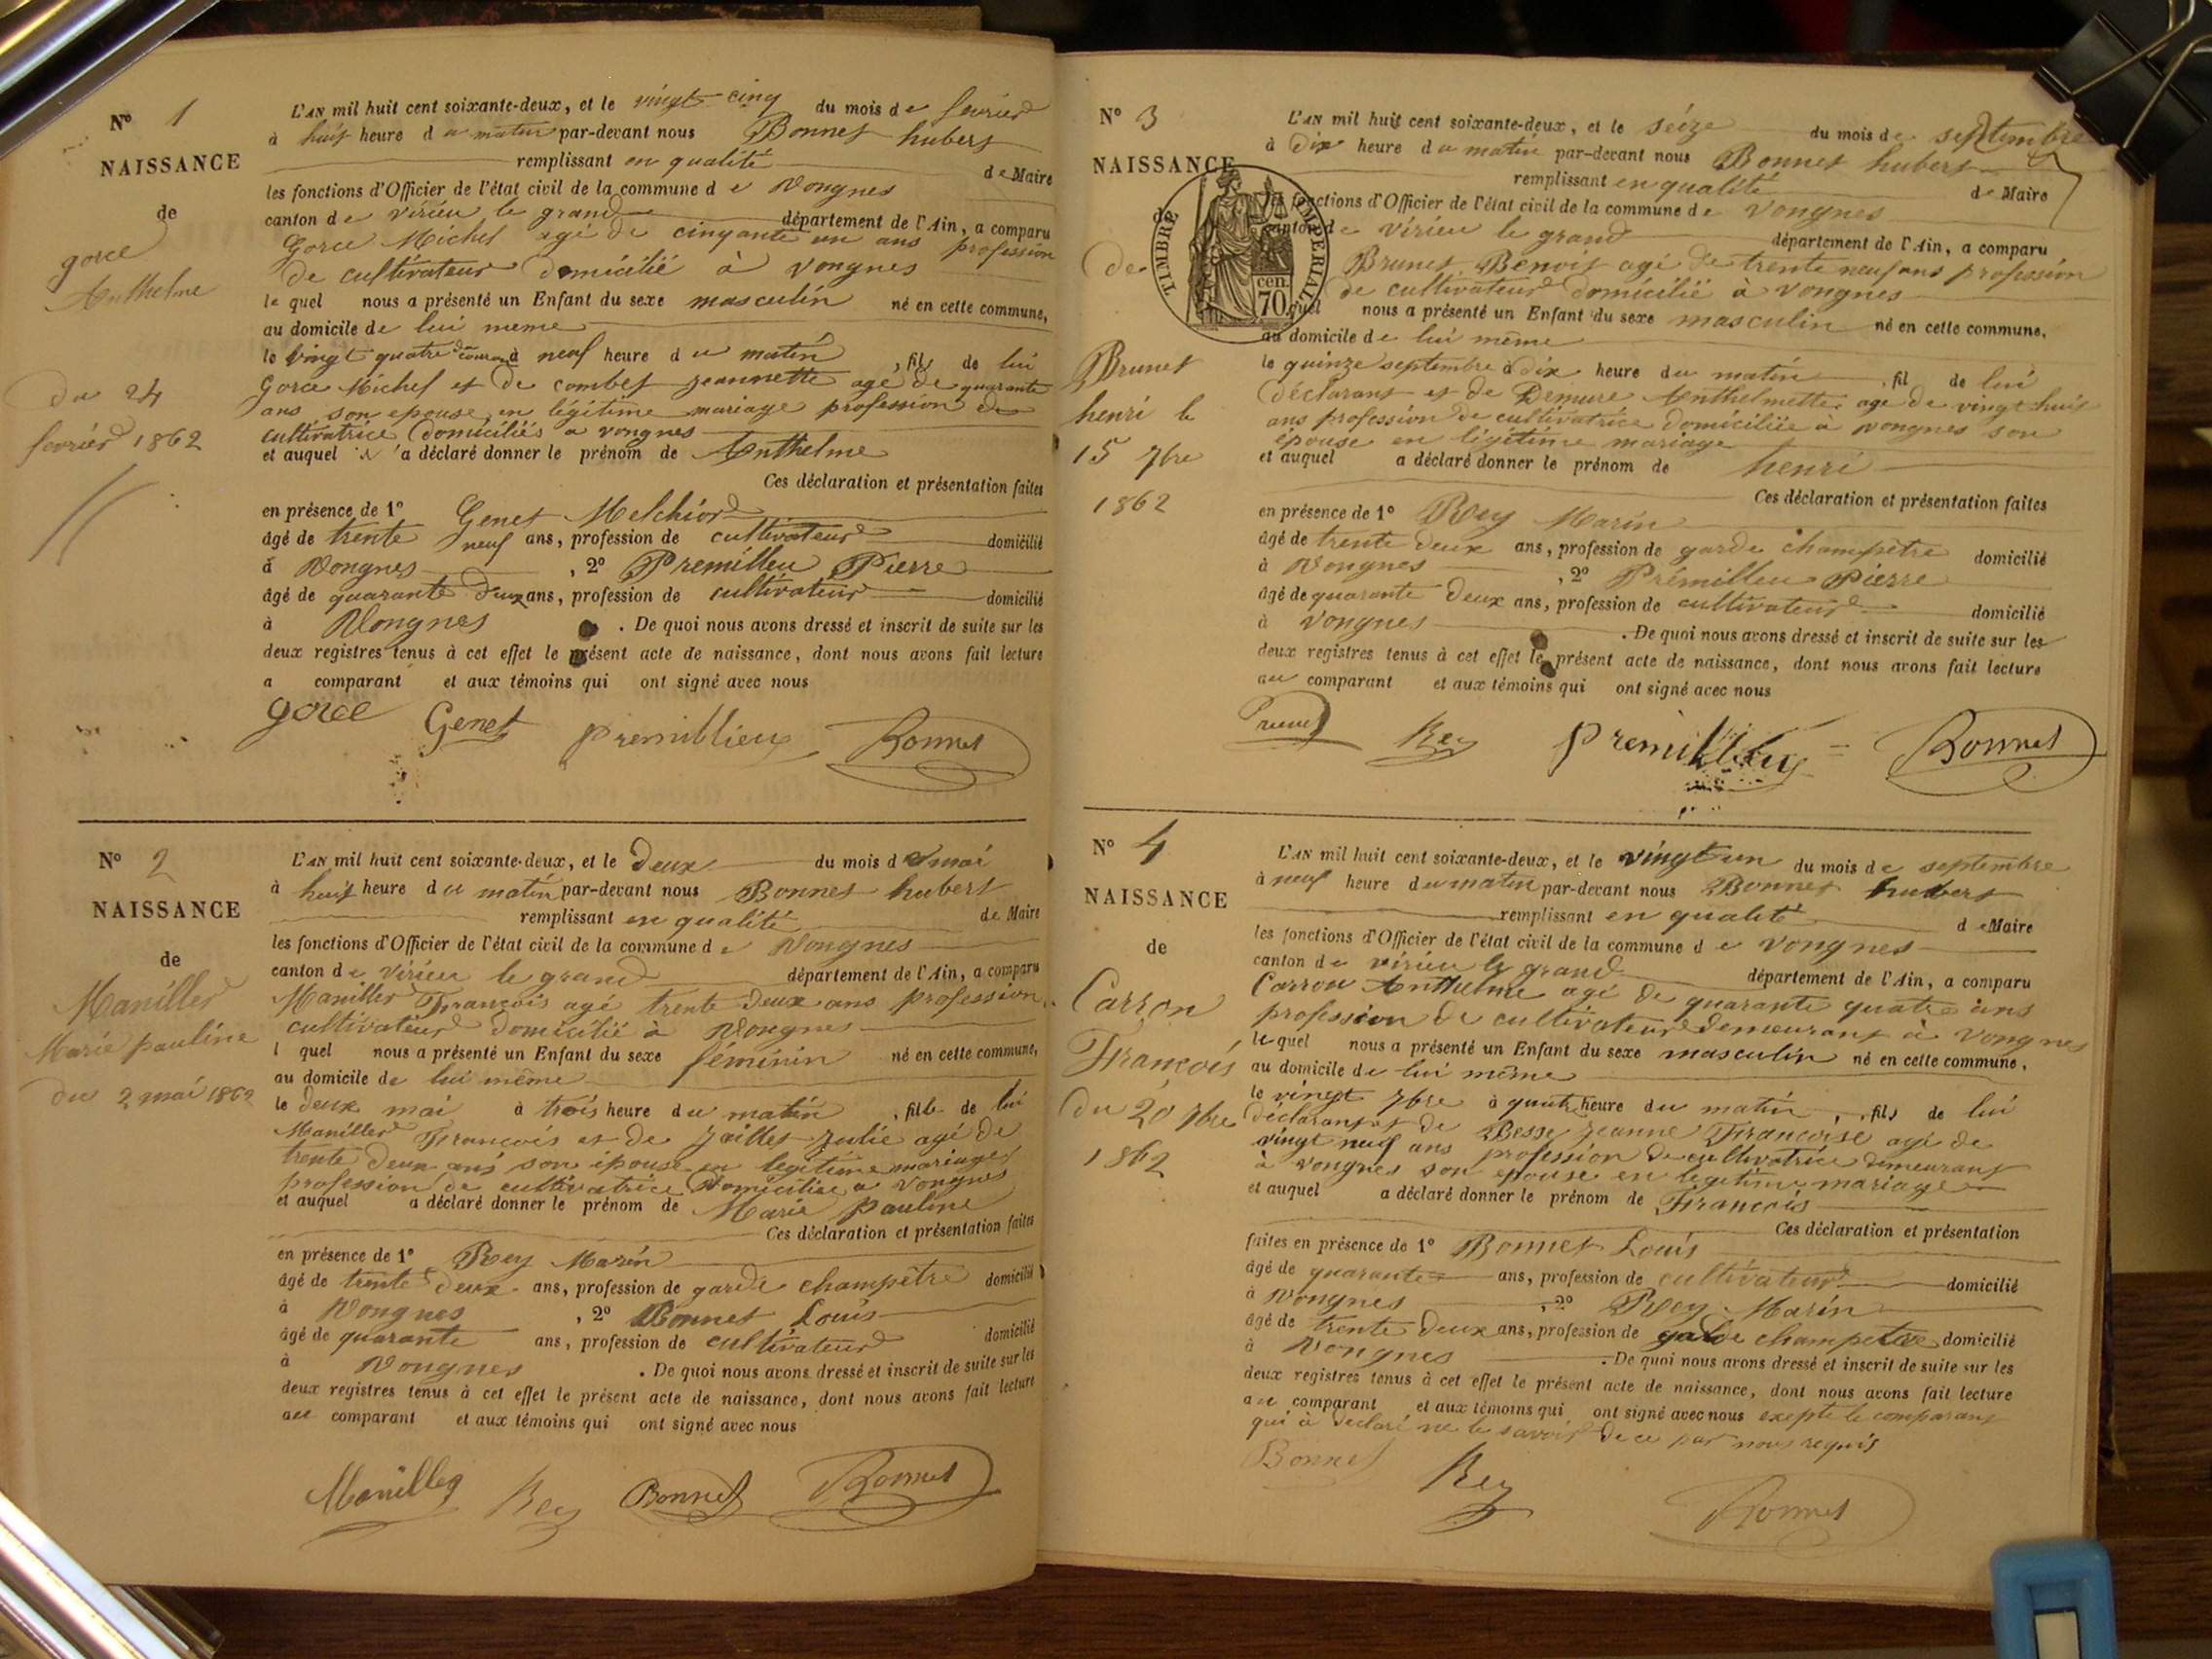 N° 1
NAISSANCE
de
gorce
Anthelme
du 24
fevrier 1862
L'AN mil huit cent soixante-deux, et le vingt cinq du mois de fevrier
à huit heure du matin par-devant nous Bonnet hubert
remplissant en qualité de Maire
les fonctions d'Officier de l'état civil de la commune de Vongnes
canton de virieu le grand département de l'Ain, a comparu
Gorce Michel agé de cinquante un ans profession
de cultivateur domicilié à vongnes
le quel nous a présenté un Enfant du sexe masculin né en cette commune,
au domicile de lui meme
le vingt quatre du courant à neuf heure du matin, fils de lui
Gorce Michel et de combet jeannette agé de quarante
ans son epouse en légitime mariage profession de
cultivatrice domiciliés a vongnes
et auquel il a déclaré donner le prénom de Anthelme
Ces déclaration et présentation faites
en présence de 1° Genet Melchior
âgé de trente neuf ans, profession de cultivateur domicilié
à Vongnes, 2° Premillieu Pierre
âgé de quarante deux ans, profession de cultivateur domicilié
à Vongnes. De quoi nous avons dressé et inscrit de suite sur les
deux registres tenus à cet effet le présent acte de naissance, dont nous avons fait lecture
a comparant et aux témoins qui ont signé avec nous
gorce Genet premillieu Bonnet
N° 2
NAISSANCE
de
Maniller
Marie pauline
du 2 mai 1862
L'AN mil huit cent soixante-deux, et le Deux du mois d mai
à huit heure du matin par-devant nous Bonnet hubert
remplissant en qualité de Maire
les fonctions d'Officier de l'état civil de la commune de Vongnes
canton de virieu le grand département de l'Ain, a comparu
Maniller François agé trente deux ans profession
cultivateur domicilié à Vongnes
l quel nous a présenté un Enfant du sexe féminin né en cette commune,
au domicile de lui même
le deux mai à trois heure du matin, fille de lui
Maniller François et de Jaillet Julie agé de
trente deux ans son épouse en legitime mariage
profession de cultivatrice domiciliée a vongnes
et auquel a déclaré donner le prénom de Marie pauline
Ces déclaration et présentation faites
en présence de 1° Rey Marin
âgé de trente deux ans, profession de garde champêtre domicilié
à Vongnes, 2° Bonnet Louis
âgé de quarante ans, profession de cultivateur domicilié
à Vongnes. De quoi nous avons dressé et inscrit de suite sur les
deux registres tenus à cet effet le présent acte de naissance, dont nous avons fait lecture
au comparant et aux témoins qui ont signé avec nous
Maniller Rey Bonnet Bonnet
N° 3
NAISSANCE
de
de
Brunet
henri le
15 7bre
1862
TIMBRE IMPERIAL
70 cen.
L'AN mil huit cent soixante-deux, et le seize du mois de septembre
à Dix heure du matin par-devant nous Bonnet hubert
remplissant en qualité de Maire
les fonctions d'Officier de l'état civil de la commune de Vongnes
canton de virieu le grand département de l'Ain, a comparu
Brunet Benoit agé de trente neuf ans profession
de cultivateur domicilié à vongnes
quel nous a présenté un Enfant du sexe masculin né en cette commune,
au domicile de lui même
le quinze septembre à dix heure du matin, fil de lui
déclarant et de Demure Anthelmette agé de vingt huit
ans profession de cultivatrice domiciliée a vongnes son
épouse en légitime mariage
et auquel a déclaré donner le prénom de henri
Ces déclaration et présentation faites
en présence de 1° Rey Marin
âgé de trente deux ans, profession de garde champêtre domicilié
à Vongnes, 2° Prémillieu Pierre
âgé de quarante deux ans, profession de cultivateur domicilié
à vongnes. De quoi nous avons dressé et inscrit de suite sur les
deux registres tenus à cet effet le présent acte de naissance, dont nous avons fait lecture
au comparant et aux témoins qui ont signé avec nous
Rey premillieu Bonnet
N° 4
NAISSANCE
de
Carron
François
du 20 7bre
1862
L'AN mil huit cent soixante-deux, et le vingt un du mois de septembre
à neuf heure du matin par-devant nous Bonnet hubert
remplissant en qualité de Maire
les fonctions d'Officier de l'état civil de la commune de vongnes
canton de virieu le grand département de l'Ain, a comparu
Carron Anthelme agé de quarante quatre ans
profession de cultivateur demeurant à vongnes
le quel nous a présenté un Enfant du sexe masculin né en cette commune,
au domicile de lui même
le vingt 7bre à quatre heure du matin, fils de lui
déclarant et de Besse jeanne Françoise agé de
vingt neuf ans profession de cultivatrice demeurant
à vongnes son epouse en legitime mariage
et auquel a déclaré donner le prénom de François
Ces déclaration et présentation
faites en présence de 1° Bonnet Louis
âgé de quarante ans, profession de cultivateur domicilié
à Vongnes, 2° Rey Marin
âgé de trente deux ans, profession de garde champetre domicilié
à Vongnes. De quoi nous avons dressé et inscrit de suite sur les
deux registres tenus à cet effet le présent acte de naissance, dont nous avons fait lecture
au comparant et aux témoins qui ont signé avec nous exepté le comparant
qui à declaré ne le savoir de ce par nous requis
Bonnet Rey Bonnet